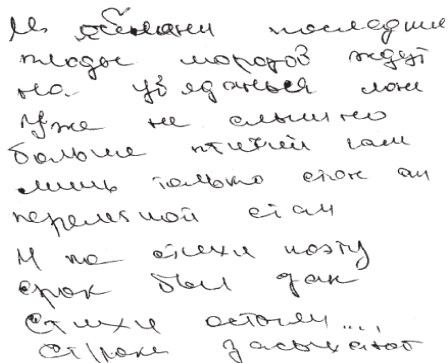 И обманом последние
плоды морозов ждут
на увяданья
Уже не слышно
больше птичий гам
лишь только стон
перелетной стаи
И на стихи поэту
срок был дан
Стихи остыли....
Строки засыхают